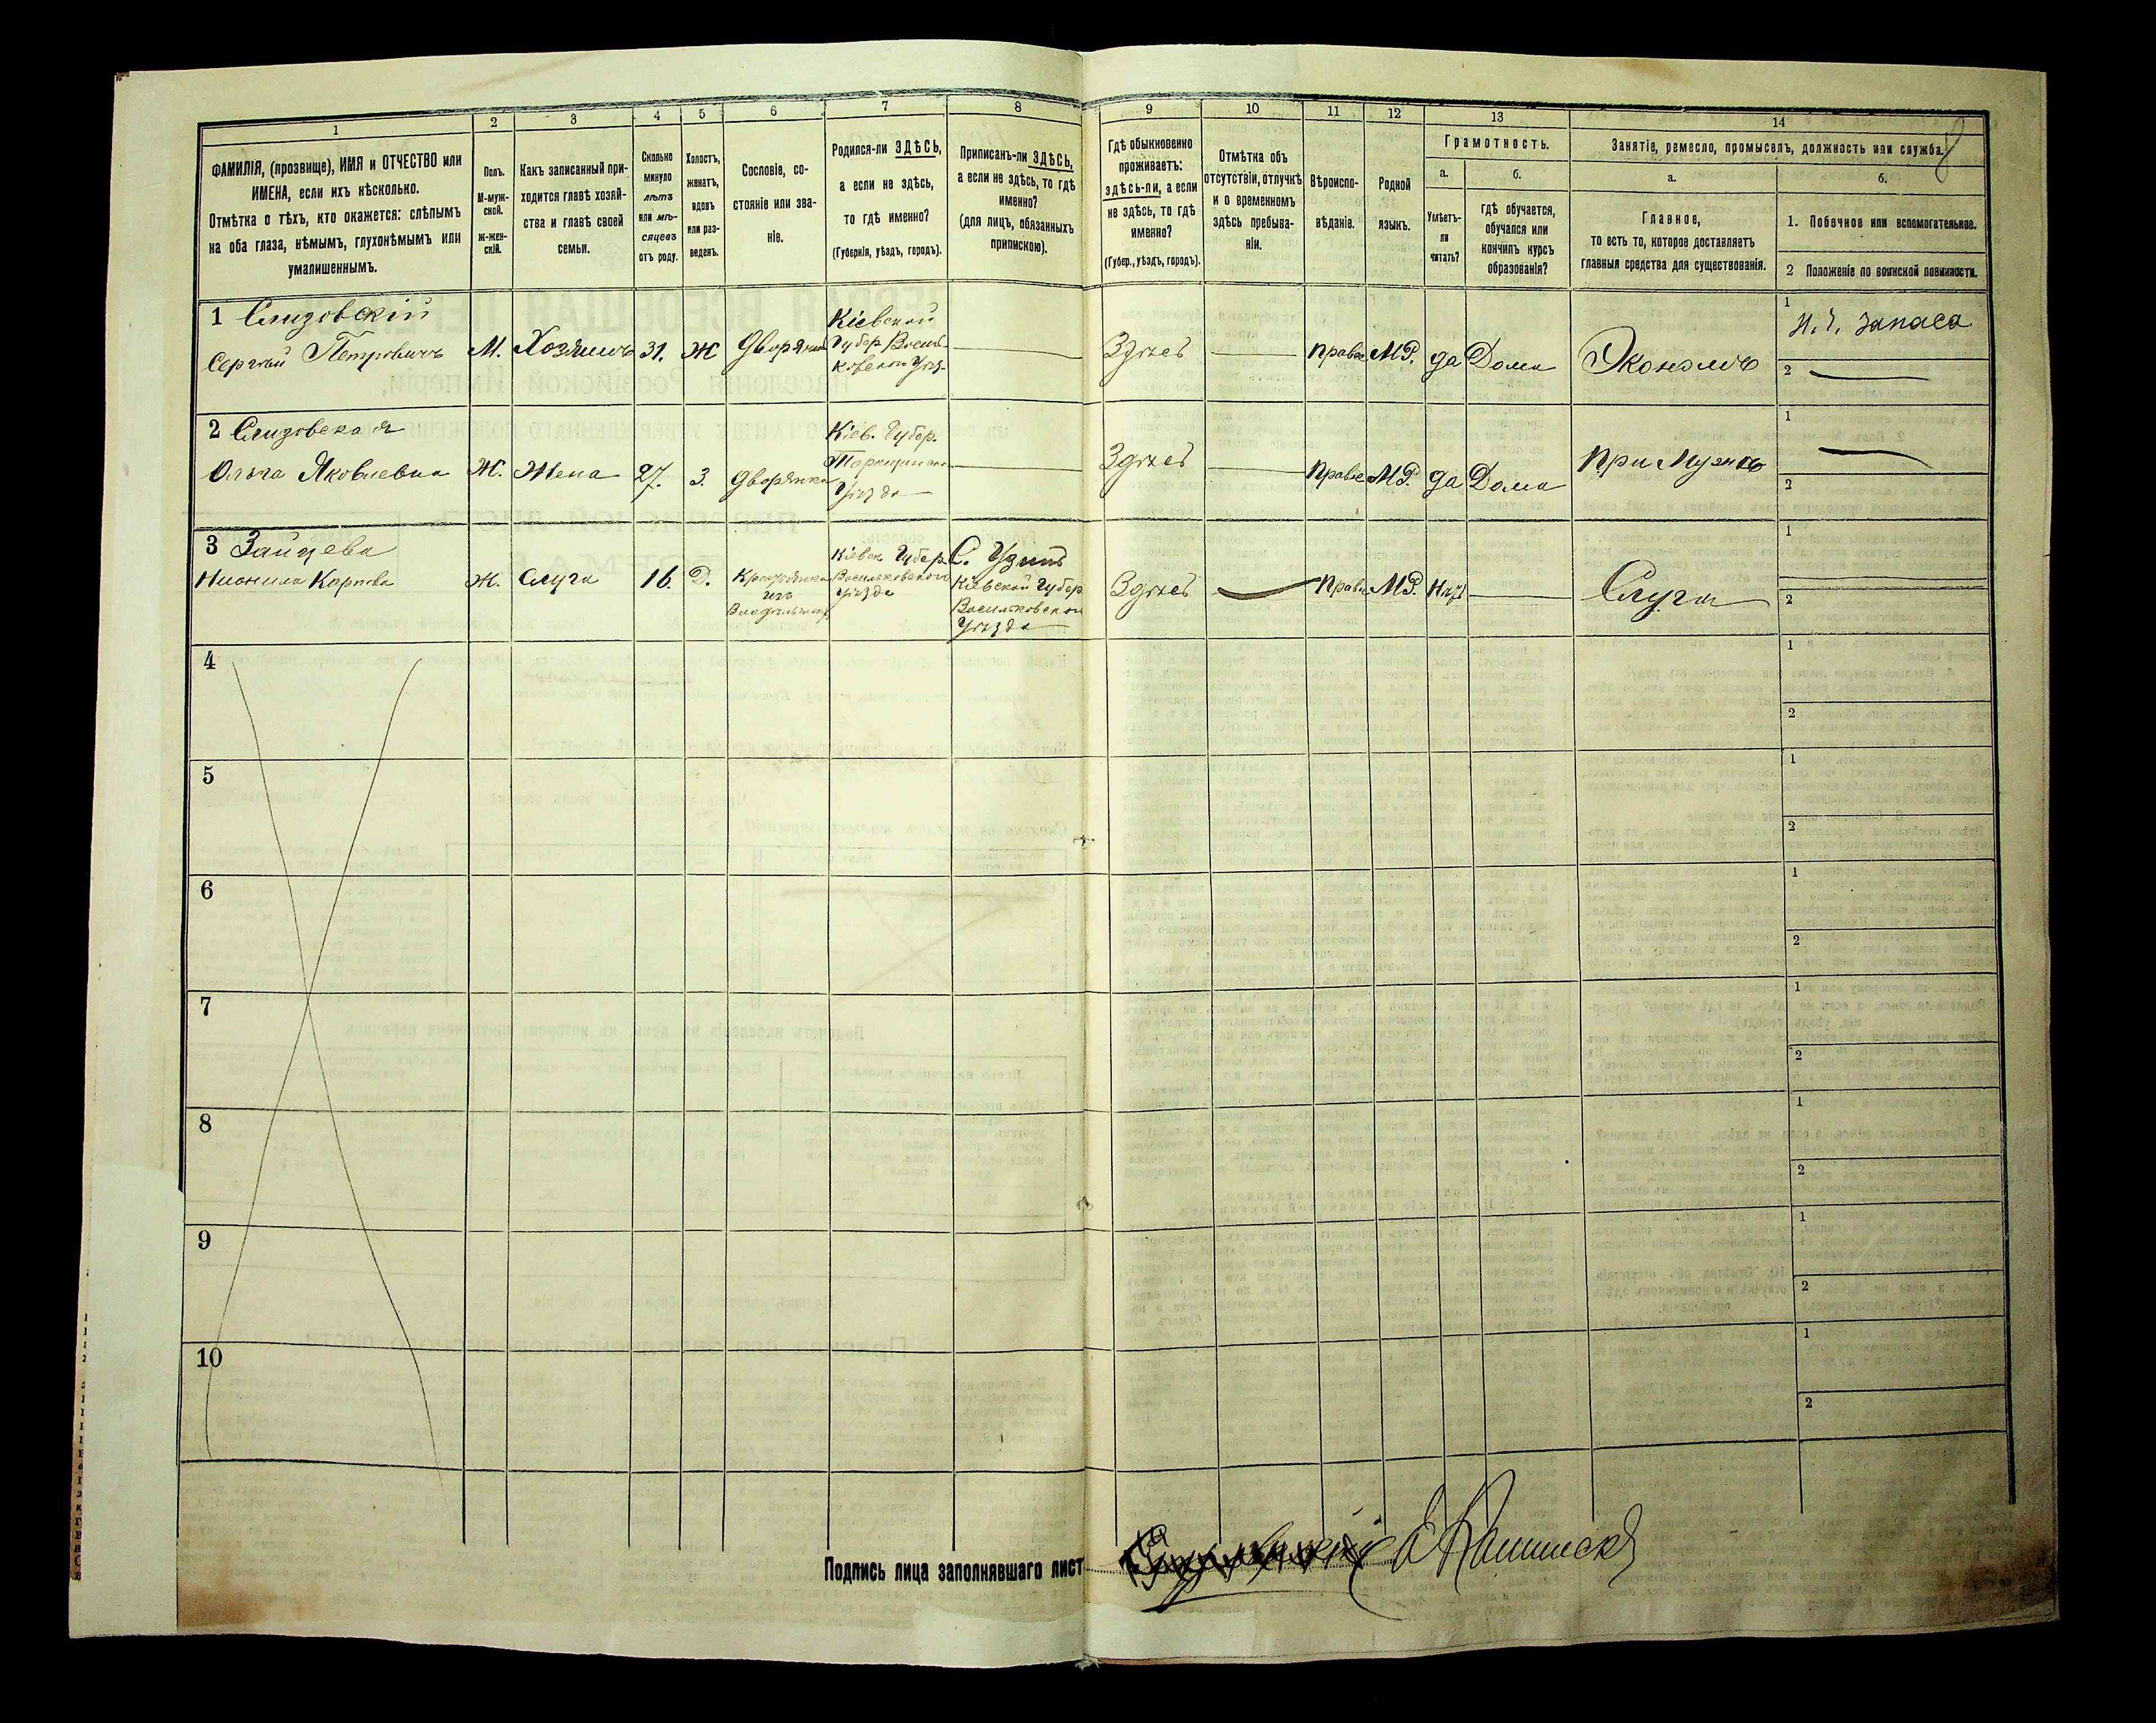 1
2
3
4
5
6
7
8
9
10
11
12
13
14
8
ФАМИЛІЯ, (прозвище), ИМЯ и ОТЧЕСТВО или
ИМЕНА, если ихъ нѣсколько.
Отмѣтка о тѣхъ, кто окажется: слѣпымъ
на оба глаза, нѣмымъ, глухонѣмымъ или
умалишеннымъ.
Полъ.
М-муж-
ской.
ж-жен-
скій.
Какъ записанный при-
ходится главѣ хозяй-
ства и главѣ своей
семьи.
Сколько
минуло
лѣтъ
или мѣ-
сяцевъ
отъ роду.
Холостъ,
женатъ,
вдовъ
или раз-
веденъ.
Сословіе, со-
стояніе или зва-
ніе.
Родился-ли ЗДѢСЬ,
а если не здѣсь,
то гдѣ именно?
(Губернія, уѣздъ, городъ).
Приписанъ-ли ЗДѢСЬ,
а если не здѣсь, то гдѣ
именно?
(для лицъ, обязанныхъ
припискою).
Гдѣ обыкновенно
проживаетъ:
здѣсь-ли, а если
не здѣсь, то гдѣ
именно?
(Губер., уѣздъ, городъ).
Отмѣтка объ
отсутствіи, отлучкѣ
и о временномъ
здѣсь пребыва-
ніи.
Вѣроиспо-
вѣданіе.
Родной
языкъ.
Грамотность.
а.
Умѣетъ-
ли
читать?
б.
гдѣ обучается,
обучался или
кончилъ курсъ
образованія?
Занятіе, ремесло, промыселъ, должность или служба.
а.
Главное,
то есть то, которое доставляетъ
главныя средства для существованія.
б.
1. Побочное или вспомогательное.
2 Положеніе по воинской повинности.
1 Слизовскій
Сергѣй Петровичъ
М.
Хозяинъ
31.
Ж
Дворянин
Кіевской
Губер Василь-
ковскаго Уѣз.
Здѣсь
Правос
МР.
да
Дома
Экономъ
1
Н. Ч. Запаса
2
2 Слизовская
Ольга Яковлевна
Ж.
Жена
27.
З.
Дворянка
Кіев. Губер.
Уѣзда
Здѣсь
Правос
МР.
да
Дома
При Мужѣ
1
2
3 Зайцева
Карпова
Ж.
Слуга
16.
Д.
Крестьянка
изъ
Кіевск Губер.
Васильковского
Уѣзда
С. Узинъ
Кіевской Губер
Васильковскаго
Уѣзда
Здѣсь
Правос
МР.
Нѣтъ
Слуга
1
2
4
1
2
5
1
2
6
1
2
7
1
2
8
1
2
9
1
2
10
1
2
Подпись лица заполнявшаго лист